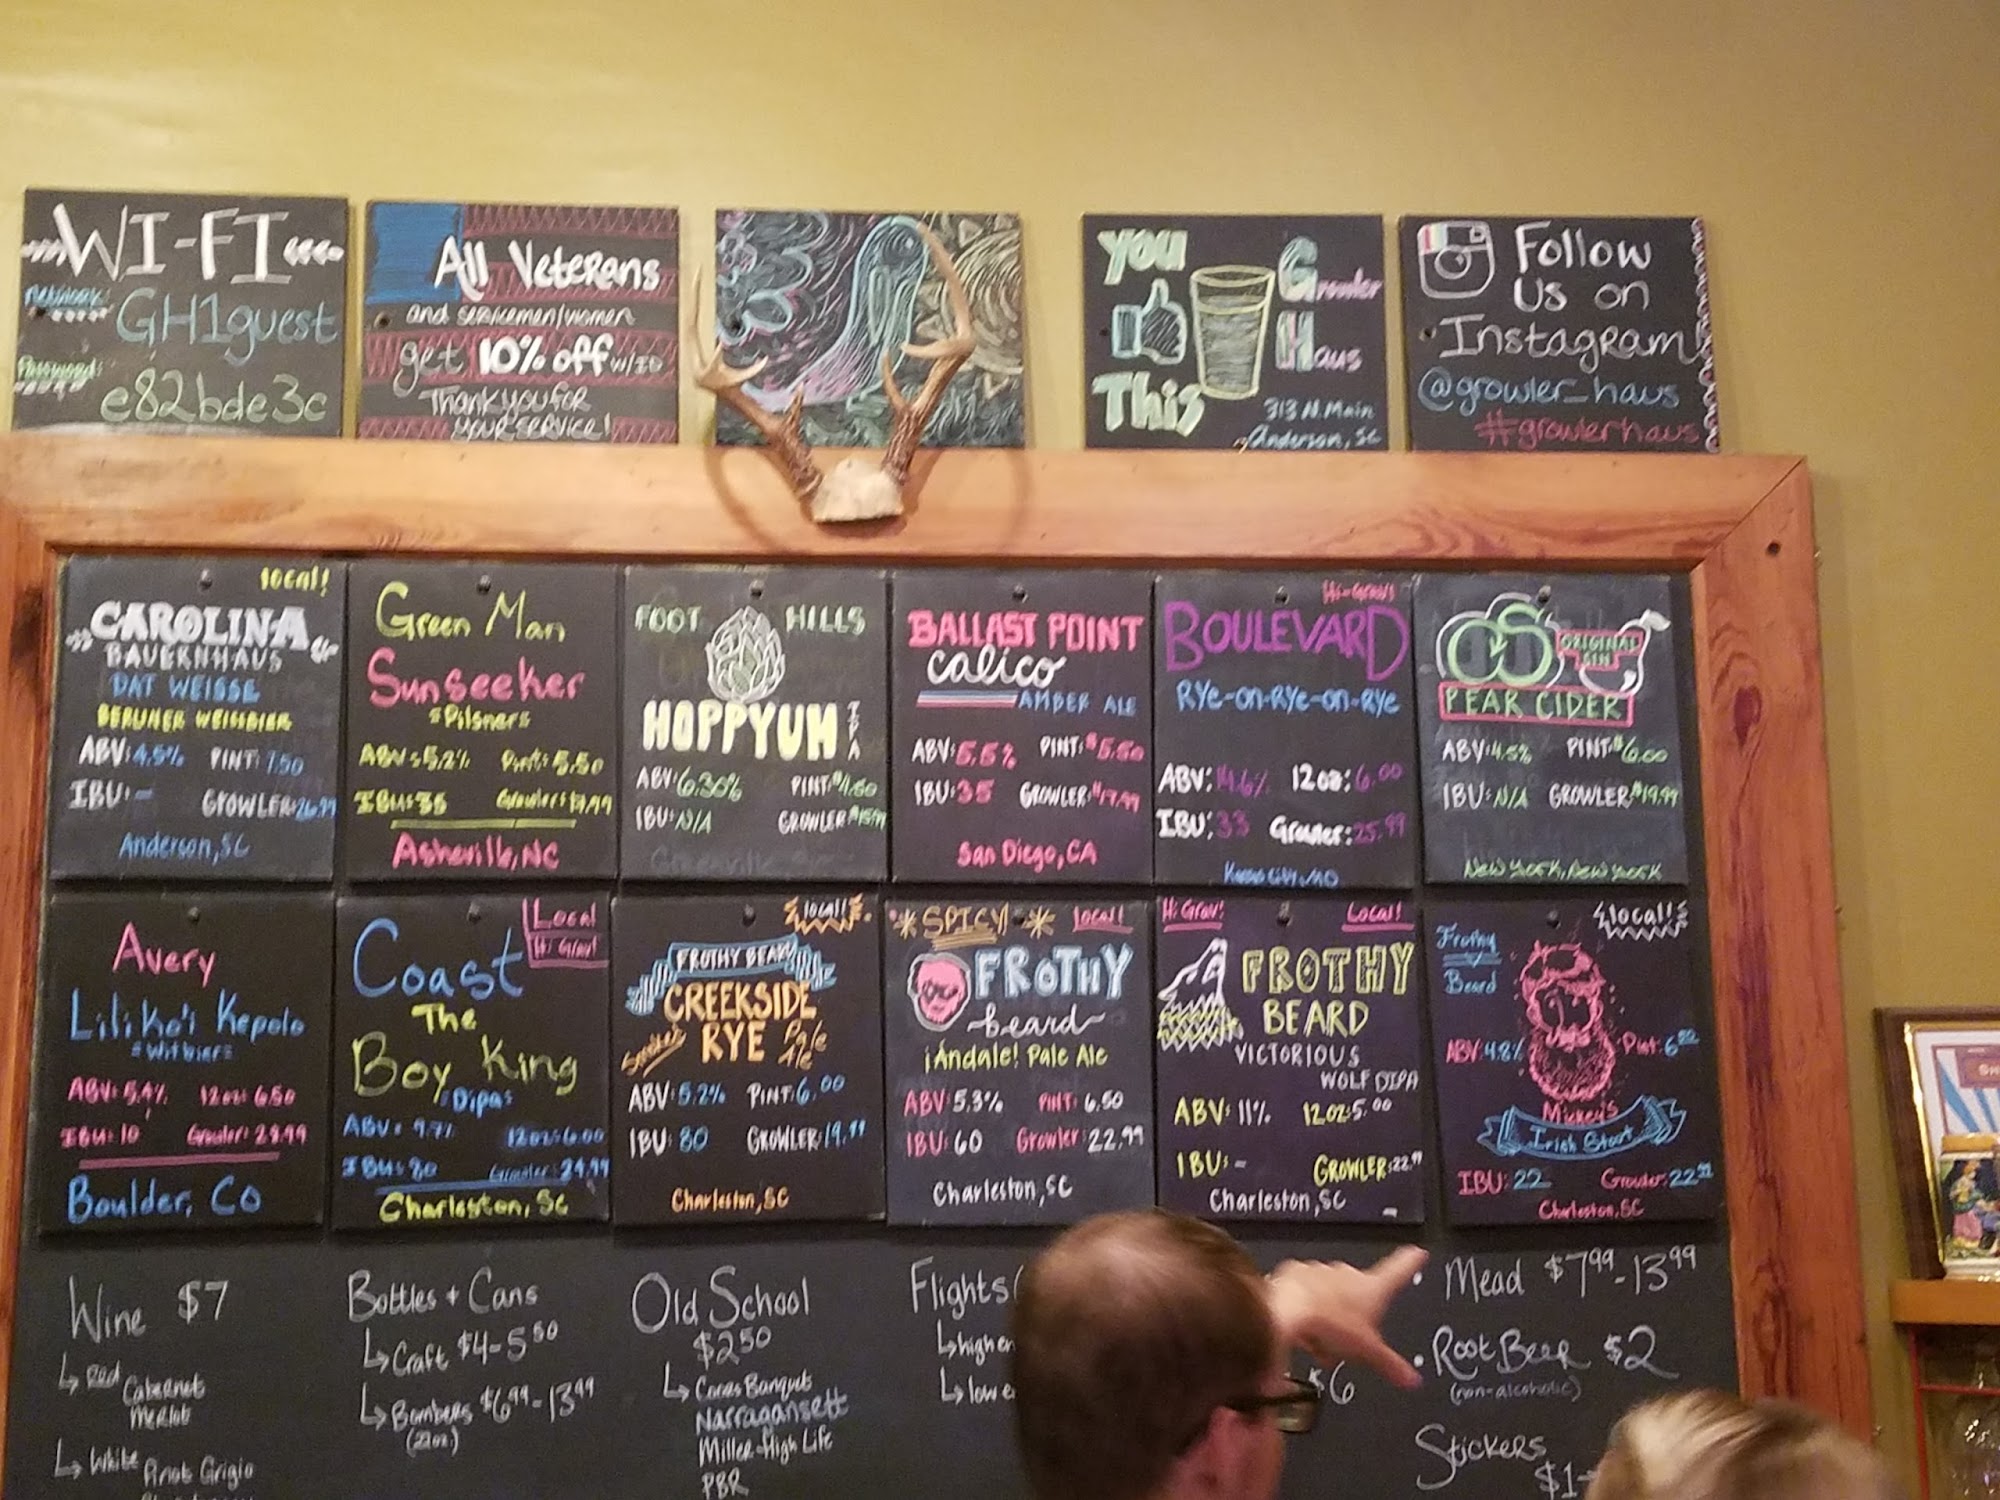 WI-FI
Network:
GH1guest
Password:
e82bde3c
All Veterans
and servicemen/women
get 10% off w/ID
Thank you for
your service!
You
This
Growler
Haus
313 N. Main
Anderson, SC
Follow
Us on
Instagram
@growler_haus
#growlerhaus
local!
CAROLINA
BAUERNHAUS
DAT WEISSE
BERLINER WEISSBIER
ABV: 4.5% PINT: 7.50
IBU: - GROWLER: 26.99
Anderson, SC
Green Man
Sunseeker
Pilsner
ABV: 5.2% Pint: 5.50
IBU: 35 Growler: 17.99
Asheville, NC
FOOT HILLS
HOPPYUM IPA
ABV: 6.30% PINT: $4.50
IBU: N/A GROWLER: $15.99
BALLAST POINT
Calico
AMBER ALE
ABV: 5.5% PINT: $5.50
IBU: 35 GROWLER: $17.99
San Diego, CA
Hi-Grav!
BOULEVARD
Rye-on-Rye-on-Rye
ABV: 14.6% 12oz: 6.00
IBU: 33 Growler: 25.99
Kansas City, MO
ORIGINAL
SIN
PEAR CIDER
ABV: 4.5% PINT: $6.00
IBU: N/A GROWLER: $19.99
New York, New York
Avery
Liliko'i Kepolo
Witbier
ABV: 5.4% 12oz: 6.50
IBU: 10 Growler: 28.99
Boulder, CO
Local
Hi Grav!
Coast
The
Boy King
Dipa
ABV: 9.7% 12oz: 6.00
IBU: 80 Growler: 24.99
Charleston, SC
local!
FROTHY BEARD
CREEKSIDE
RYE Pale Ale
ABV: 5.2% PINT: 6.00
IBU: 80 GROWLER: 19.99
Charleston, SC
SPICY local!
FROTHY
beard
¡Ándale! Pale Ale
ABV: 5.3% PINT: 6.50
IBU: 60 Growler: 22.99
Charleston, SC
Hi Grav! Local!
FROTHY
BEARD
VICTORIOUS
WOLF DIPA
ABV: 11% 12oz: 5.00
IBU: - GROWLER: 22.99
Charleston, SC
local!
Frothy
Beard
ABV: 4.8% Pint: 6.00
Mickey's
Irish Stout
IBU: 22 Growler: 22.99
Charleston, SC
Wine $7
Red Cabernet
Merlot
White Pinot Grigio
Bottles + Cans
Craft $4-5.50
Bombers $6.99-13.99
(22oz.)
Old School
$2.50
Coors Banquet
Narragansett
Miller High Life
PBR
Flights (
high
low
$6
Mead $7.99-13.99
Root Beer $2
(non-alcoholic)
Stickers
$1-